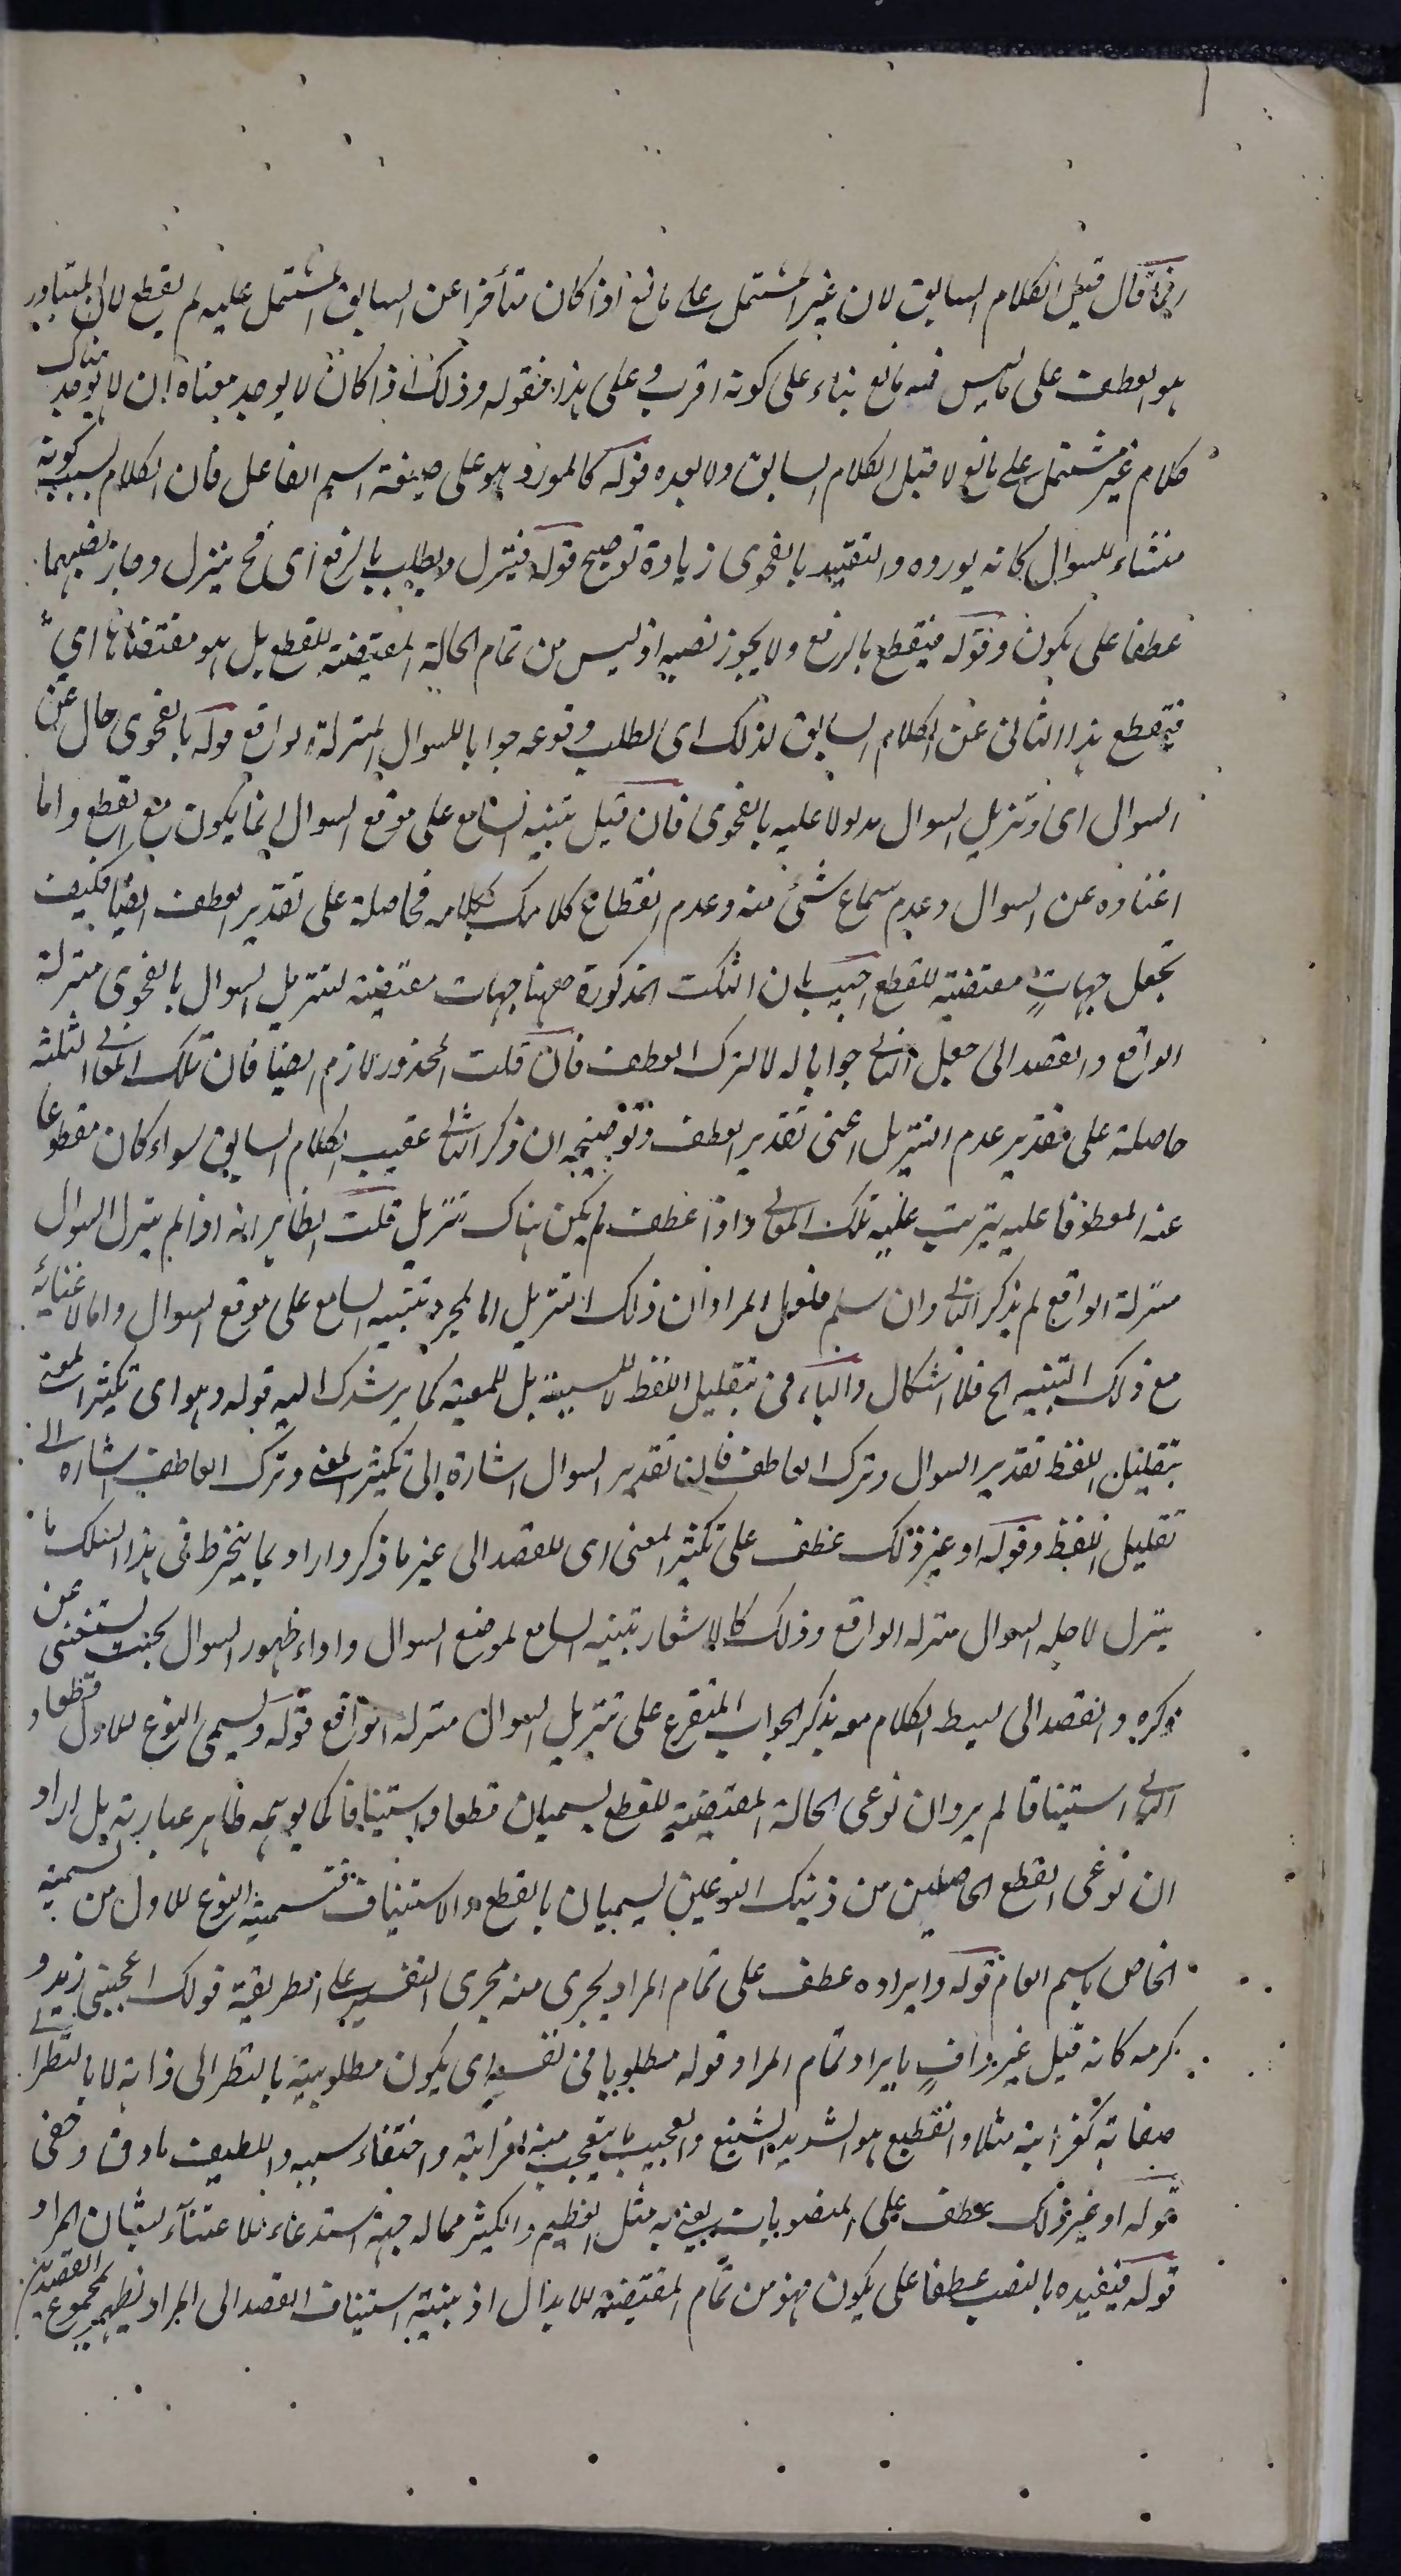 وانما قال قبل الكلام السابق لان غير المشتمل على مانع اذا كان متأخرا عن السابق المشتمل عليه لم يقطع لان المتبادر
هو العطف على ما ليس فيه مانع بناء على كونه اقرب وعلى هذا فقوله وذلك اذا كان لا يوجد معناه ان لا يوجد هناك
كلام غير مشتمل على مانع لا قبل الكلام السابق ولا بعده قوله كالمورد هو على صيغة اسم الفاعل فان الكلام بسبب كونه
منشاء للسوال كانه يورده والتقييد بالفحوى زيادة توضيح قوله فينزل ويطلب بالرفع اى فح ينزل وجاز نصبهما
عطفا على يكون وقوله فيقطع بالرفع ولا يجوز نصبه اذ ليس من تمام الحالة المقتضية للقطع بل هو مقتضاها اي
فيقطع هذا الثاني عن الكلام السابق لذلك اى لطلب وقوعه جوابا للسوال المنزلة الواقع قوله بالفحوى حال عن
السوال اى وتنزيل السوال مدلولا عليه بالفحوى فان قيل تنبيه السامع على موقع السوال انما يكون مع القطع واما
اغناؤه عن السوال وعدم سماع شئ منه وعدم انقطاع كلامك بكلامه فحاصلة على تقدير العطف ايضا فكيف
تجعل جهاتٍ مقتضية للقطع اجيب بان النكت المذكورة ههنا جهات مقتضية لتنزيل السوال بالفحوى منزلة
الواقع والقصد الى جعل الثاني جوابا له لا لترك العطف فان قلت المحذور لازم ايضا فان تلك المعاني الثلثة
حاصلة على تقدير عدم التنزيل اعنى تقدير العطف وتوضيحه ان ذكر الثاني عقيب الكلام السابق سواء كان مقطوعا
عنه او معطوفا عليه يترتب عليه تلك المعاني واذا عطف لم يكن هناك تنزيل قلت الظاهر انه اذا لم ينزل السوال
منزلة الواقع لم يذكر الثاني وان سلم فلعل المراد ان ذلك التنزيل اما لمجرد تنبيه السامع على موقع السوال واما لاغنائه
مع ذلك التنبيه الخ فلا اشكال والباء فى بتقليل اللفظ لا للسببية بل للمعية كما يرشدك اليه قوله وهو اى تكثير المعنى
بتقليل اللفظ تقدير السوال وترك العاطف فان تقدير السوال اشارة الى تكثير المعنى وترك العاطف اشارة الى
تقليل اللفظ وقوله او غير ذلك عطف على تكثير المعنى اى للقصد الى غير ما ذكر واراد بما ينخرط فى هذا السلك ما
ينزل لاجله السوال منزلة الواقع وذلك كالاشعار بتنبيه السامع لموضع السوال واداء ظهور السوال بحيث يستغنى عن
ذكره والقصد الى بسط الكلام معه بذكر الجواب المتفرع على تنزيل السوال منزلة الواقع قوله ويسمى النوع الاول قطعا و
الثاني استينافا لم يرد ان نوعى الحالة المقتضية للقطع يسميان قطعا واستينافا كما يوهمه ظاهر عبارته بل اراد
ان نوعى القطع الحاصلين من ذينك النوعين يسميان بالقطع والاستيناف فتسمية النوع الاول من تسمية
الخاص باسم العام قوله وايراده عطف على تمام المراد يجرى منه مجرى التفسير على طريقة قولك اعجبنى زيد و
كرمه كانه قيل غير وافٍ بايراد تمام المراد قوله مطلوبا فى نفسه اى يكون مطلوبيته بالنظر الى ذاته لا بالنظر الى
صفاته كغرابته مثلا والفظيع هو الشديد الشنيع والعجيب ما يتعجب منه لغرابته واختفاء سببه واللطيف ما دق وخفى
قوله او غير ذلك عطف على المنصوبات يعنى به مثل العظيم والكثير مما له جهة استدعاء للاعتناء بشان المراد
قوله فيفيده بالنصب عطفا على يكون فهو من تمام المقتضية للابدال اذ بنية استيناف القصد الى المراد يظهر بمجموع القصدين